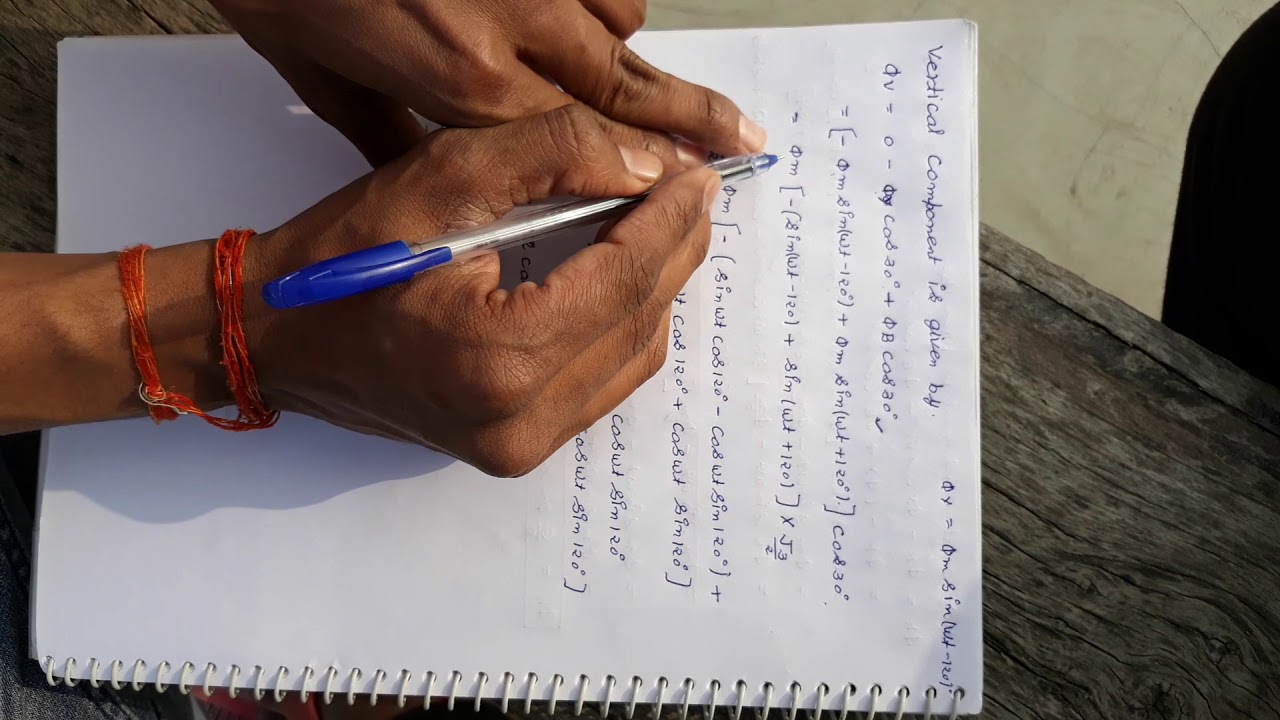 Φy = Φm sin(ωt-120)°
Vertical component is given by.
Φv = 0 - Φy cos30° + ΦB cos30°
= [- Φm sin(ωt-120°) + Φm sin(ωt+120°)] cos30°.
= Φm [-(sin(ωt-120) + sin(ωt+120)] × √3/2
Φm [- (sinωt cos120° - cosωt sin120°) +
cos120° + cosωt sin120°]
cosωt sin120°
cosωt sin120°]